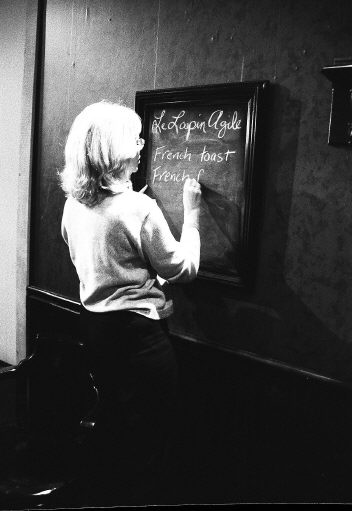 Le Lapin Agile
French toast
French f